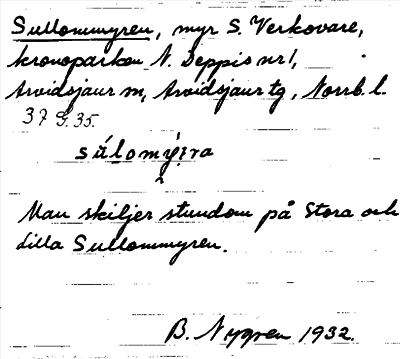 Sullommyren, myr S. Verkovare,
kronoparken N. Deppis nr 1,
Arvidsjaur m, Arvidsjaur tg, Norrb. l.
37 G. 35.
súlomýra
Man skiljer stundom på Stora och
Lilla Sullommyren.
B. Nygren 1932.